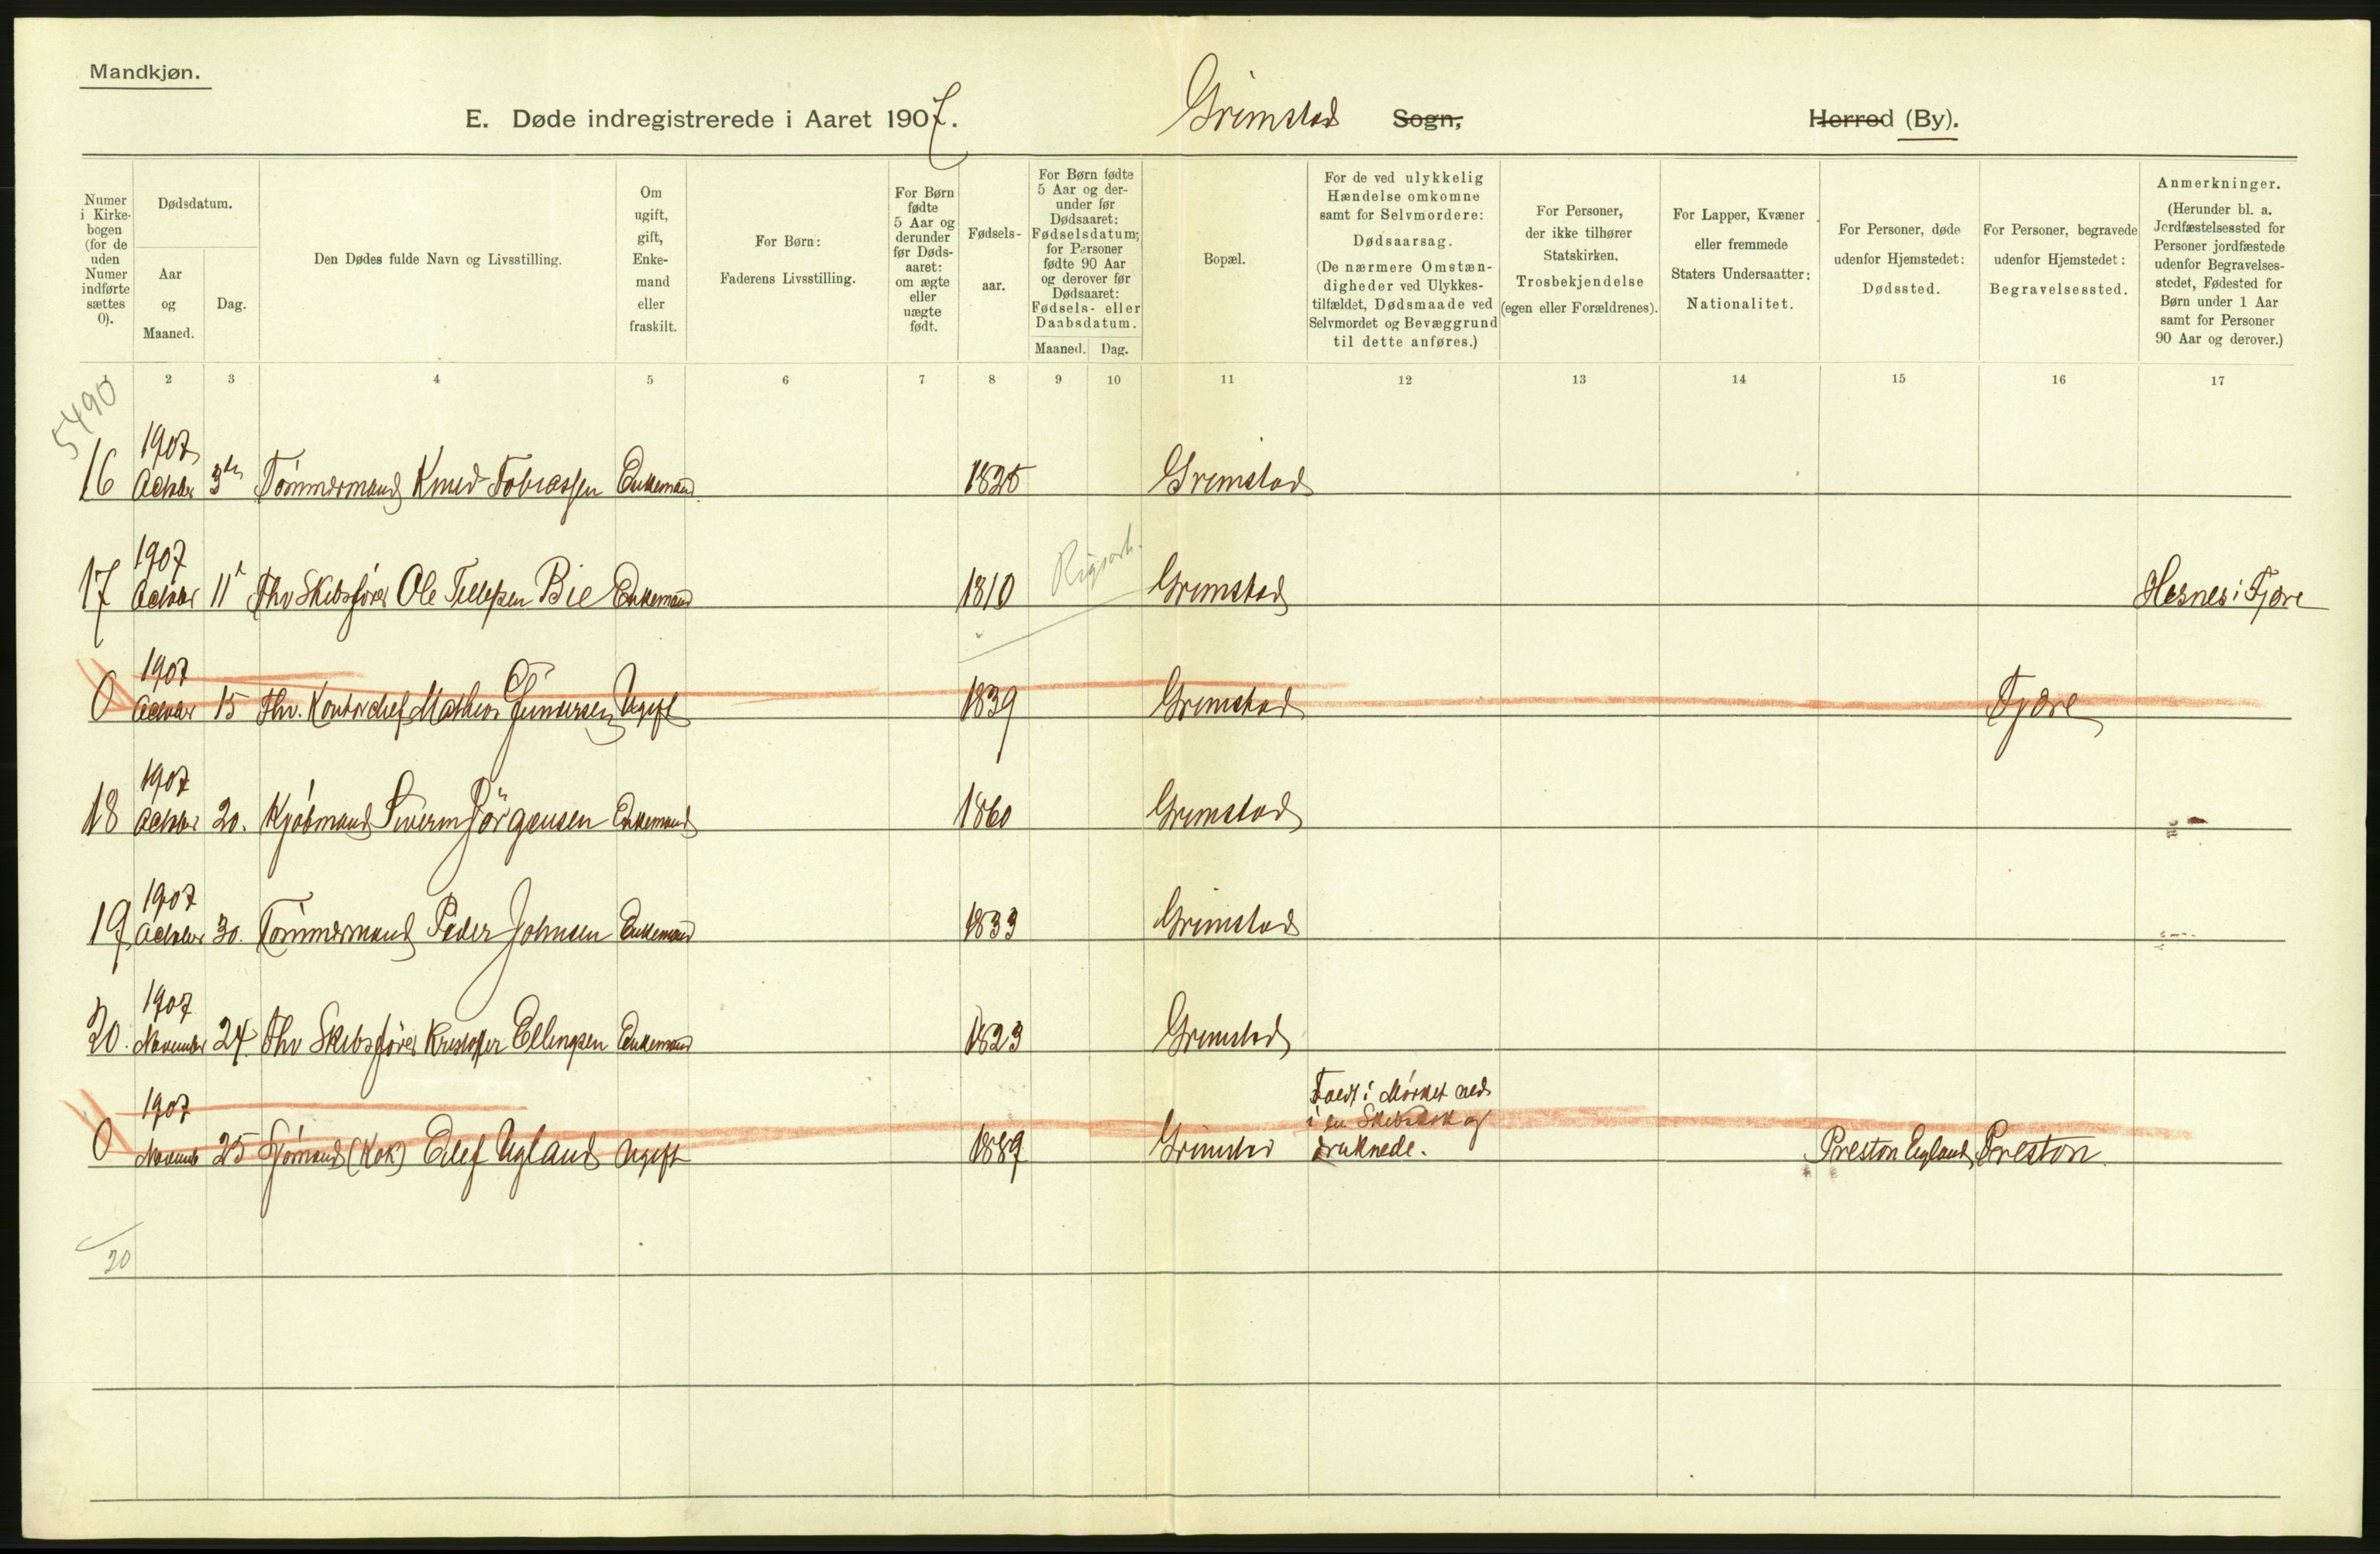 Mandkjøn.
E. Døde indregistrerede i Aaret 1907. Grimstad Sogn, Herred (By).
Numer i Kirke-bogen (for de uden Numer indførte sættes 0).
Dødsdatum.
Aar og Maaned.
Dag.
Den Dødes fulde Navn og Livsstilling.
Om ugift, gift, Enke-mand eller fraskilt.
For Børn: Faderens Livsstilling.
For Børn fødte 5 Aar og derunder før Døds-aaret: om ægte eller uægte født.
Fødsels-aar.
For Børn fødte 5 Aar og der-under før Dødsaaret: Fødselsdatum; for Personer fødte 90 Aar og derover før Dødsaaret: Fødsels- eller Daabsdatum.
Maaned. Dag.
Bopæl.
For de ved ulykkelig Hændelse omkomne samt for Selvmordere: Dødsaarsag. (De nærmere Omstæn-digheder ved Ulykkes-tilfældet, Dødsmaade ved Selvmordet og Bevæggrund til dette anføres.)
For Personer, der ikke tilhører Statskirken. Trosbekjendelse (egen eller Forældrenes).
For Lapper, Kvæner eller fremmede Staters Undersaatter: Nationalitet.
For Personer, døde udenfor Hjemstedet: Dødssted.
For Personer, begravede udenfor Hjemstedet: Begravelsessted.
Anmerkninger. (Herunder bl. a. Jordfæstelsessted for Personer jordfæstede udenfor Begravelses-stedet, Fødested for Børn under 1 Aar samt for Personer 90 Aar og derover.)
2 3 4 5 6 7 8 9 10 11 12 13 14 15 16 17
5490
1907
16 October 3 Tømmermand Knud Tobiassen Enkemand 1825 Grimstad
1907
17 October 11 Fhv Skibsfører Ole Tellefsen Bie Enkemand 1810 Rigsark. Grimstad Hesnes i Fjære
1907
0 October 15 Fhv. Kontorchef Mathias Gundersen Ugift 1839 Grimstad Fjære
1907
18 October 20. Kjøbmand Severin Jörgensen Enkemand 1860 Grimstad
1907
19 October 30. Tømmermand Peder Johnsen Enkemand 1833 Grimstad
1907
20. November 24 Fhv Skibsfører Kristoffer Ellingsen Enkemand 1823 Grimstad
1907
0 Novemb 25 Sjømand (Kok) Eilef Ugland Ugift 1889 Grimstad Faldt i Mørket ned i en Skibsdok og druknede. Preston England Preston
20